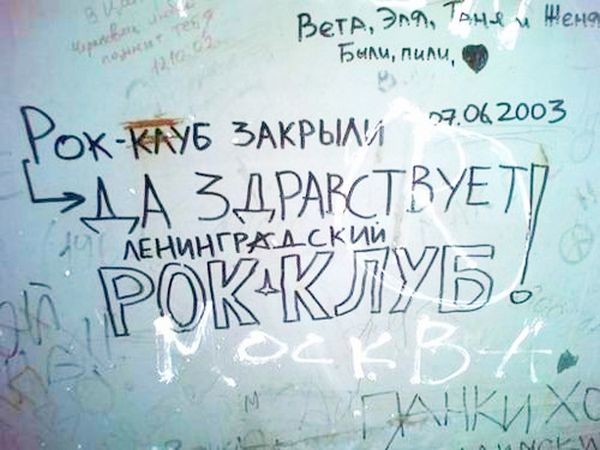 12.10.02
ВЕТА, ЭЛЯ, ТАНЯ и ЖЕНЯ
БЫЛИ, ПИЛИ,
07.06.2003
РОК-КЛУБ ЗАКРЫЛИ
ДА ЗДРАВСТВУЕТ!
ЛЕНИНГРАДСКИЙ
РОК КЛУБ!
МОСКВА
ПАНКИ ХО